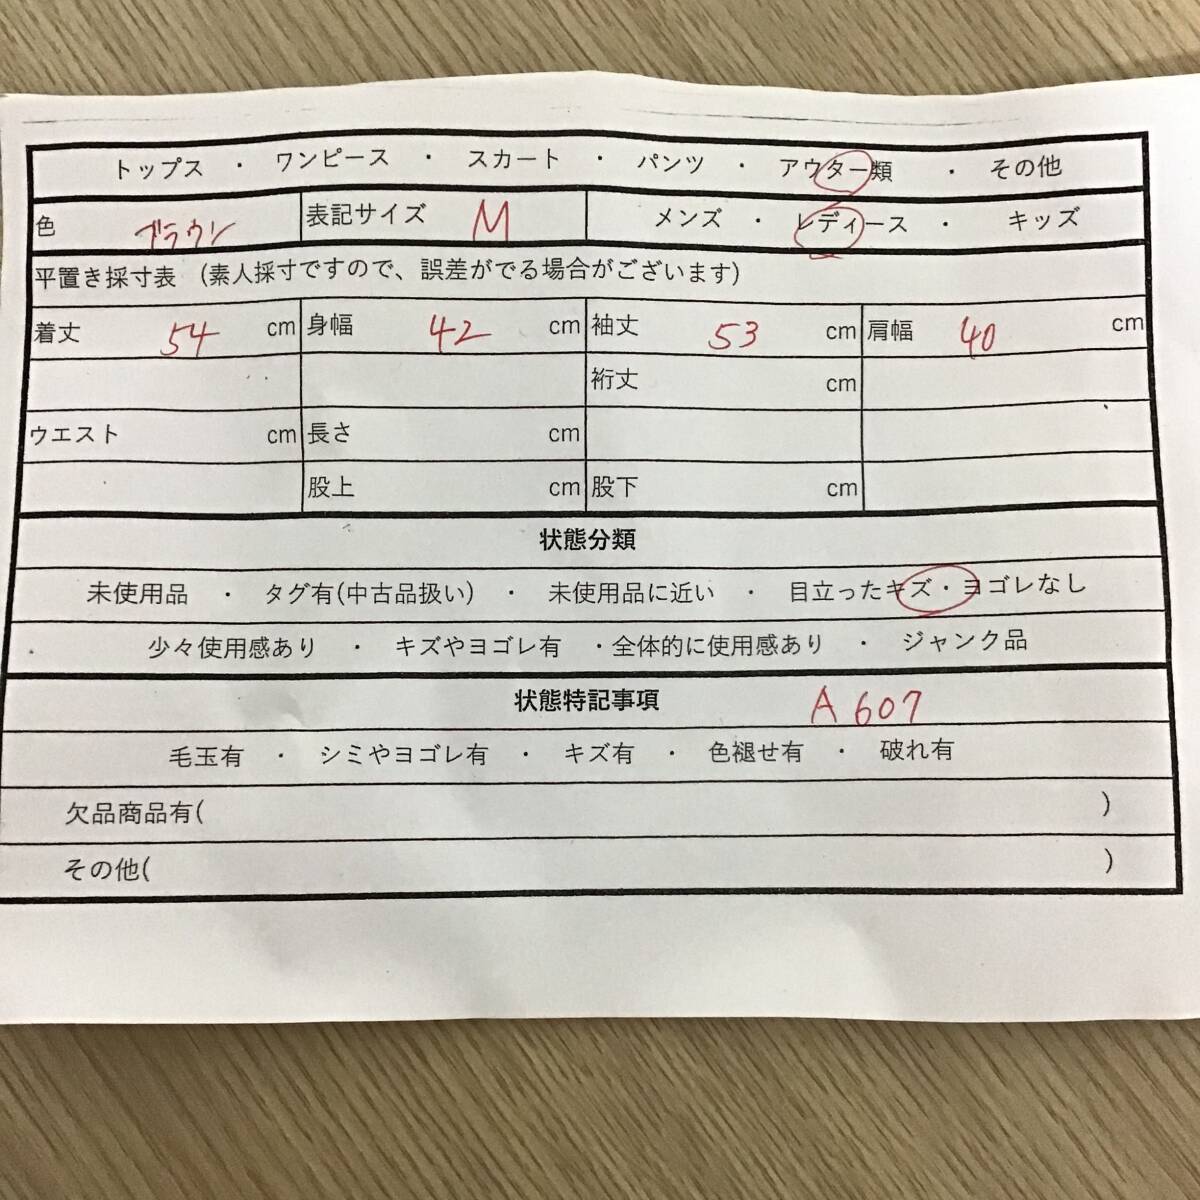 トップス ・ ワンピース ・ スカート ・ パンツ ・ アウター類 ・ その他
色 ブラウン 表記サイズ M メンズ ・ レディース ・ キッズ
平置き採寸表 (素人採寸ですので、誤差がでる場合がございます)
着丈 54 cm 身幅 42 cm 袖丈 53 cm 肩幅 40 cm
裄丈 cm
ウエスト cm 長さ cm
股上 cm 股下 cm
状態分類
未使用品 ・ タグ有(中古品扱い) ・ 未使用品に近い ・ 目立ったキズ・ヨゴレなし
・ 少々使用感あり ・ キズやヨゴレ有 ・全体的に使用感あり ・ ジャンク品
状態特記事項 A607
毛玉有 ・ シミやヨゴレ有 ・ キズ有 ・ 色褪せ有 ・ 破れ有
欠品商品有( )
その他( )